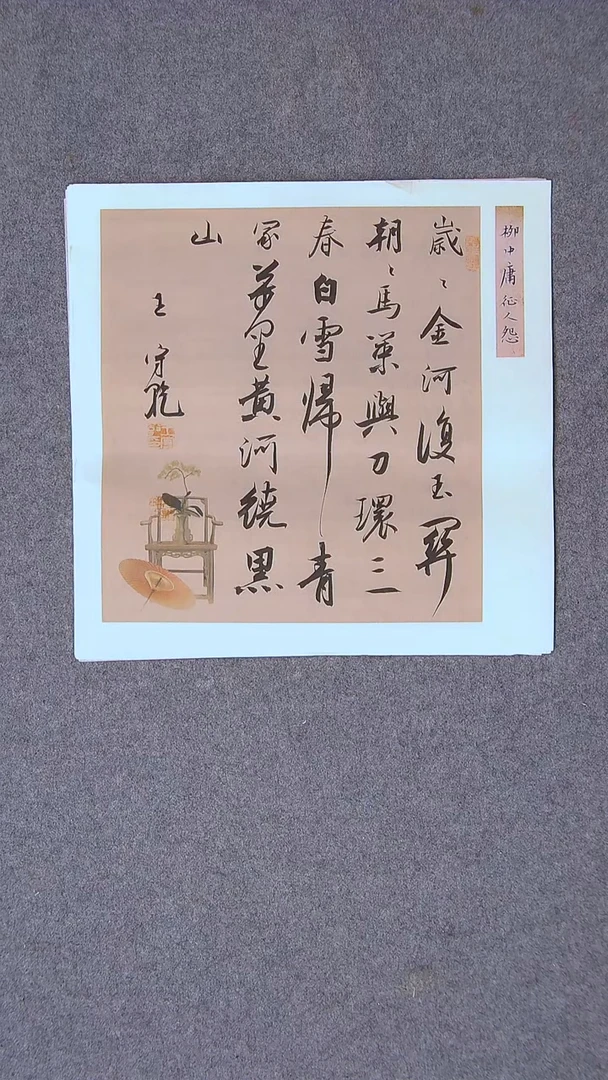 柳中庸征人怨
歲〻金河復玉關
朝〻馬策與刀環三
春白雪歸青
冢萬里黃河繞黑
山
王守